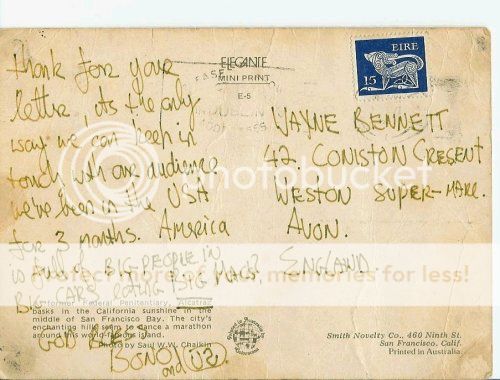 ELEGANTE
MINI PRINT
E-5
EIRE
15
thank for your
letter its the only
way we can keep in
touch with our audience
we've been in the USA
for 3 months. America
is full of BIG PEOPLE IN
BIG CARS eating BIG MACS!
GOD BLESS
BONO and U2.
WAYNE BENNETT
42. CONISTON CRESENT
WESTON SUPER-MARE.
AVON.
ENGLAND
Former Federal Penitentiary, Alcatraz
basks in the California sunshine in the
middle of San Francisco Bay. The city's
enchanting hills seem to dance a marathon
around this world-famous island.
Photo by Saul W. W. Chaikin
Smith Novelty Co., 460 Ninth St.
San Francisco, Calif.
Printed in Australia
photobucket
Protect more of your memories for less!